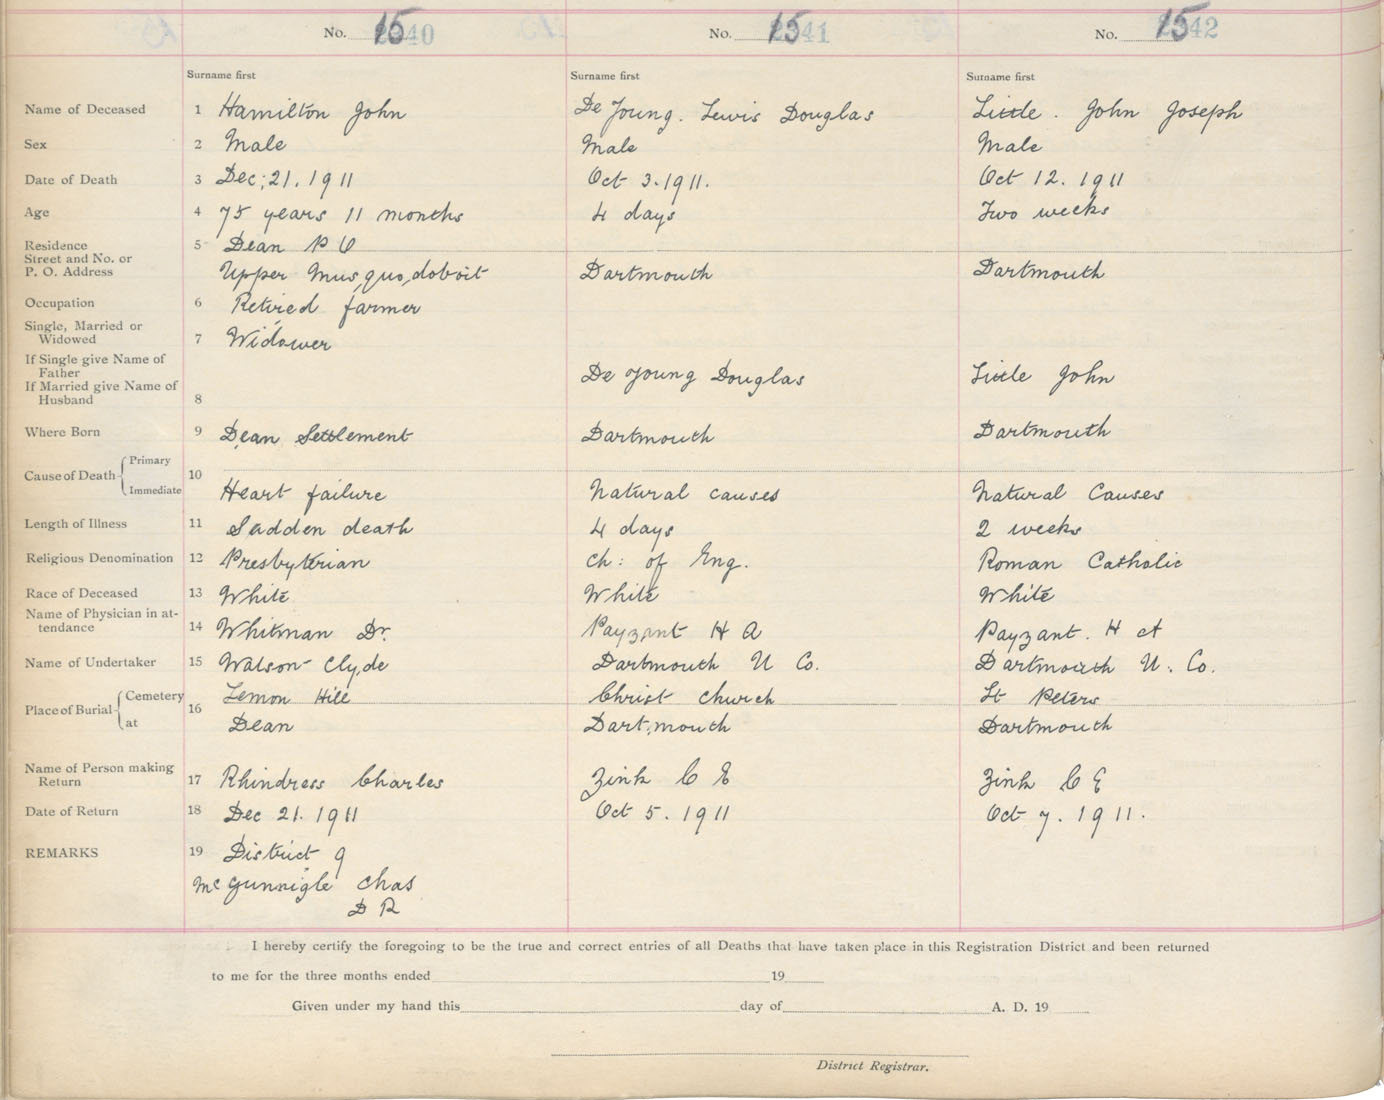 No. 1540 No. 1541 No. 1542
Surname first Surname first Surname first
Name of Deceased 1 Hamilton John De Young. Lewis Douglas Little. John Joseph
Sex 2 Male Male Male
Date of Death 3 Dec; 21. 1911 Oct 3. 1911. Oct 12. 1911
Age 4 75 years 11 months 4 days Two weeks
Residence 5 Dean P O
Street and No. or
P. O. Address Upper Musquodoboit Dartmouth Dartmouth
Occupation 6 Retired farmer
Single, Married or
Widowed 7 Widower
If Single give Name of
Father De Young Douglas Little John
If Married give Name of
Husband 8
Where Born 9 Dean Settlement Dartmouth Dartmouth
Cause of Death Primary 10
Immediate Heart failure Natural causes Natural Causes
Length of Illness 11 Sudden death 4 days 2 weeks
Religious Denomination 12 Presbyterian Ch: of Eng. Roman Catholic
Race of Deceased 13 White White White
Name of Physician in at-
tendance 14 Whitman Dr. Payzant H A Payzant. H A
Name of Undertaker 15 Watson Clyde Dartmouth U Co. Dartmouth U. Co.
Place of Burial Cemetery 16 Lemon Hill Christ Church St Peters
at Dean Dartmouth Dartmouth
Name of Person making
Return 17 Rhindress Charles Zink C E Zink C E
Date of Return 18 Dec 21. 1911 Oct 5. 1911 Oct 7. 1911.
REMARKS 19 District 9
McGunnigle Chas
D R
I hereby certify the foregoing to be the true and correct entries of all Deaths that have taken place in this Registration District and been returned
to me for the three months ended 19
Given under my hand this day of A. D. 19
District Registrar.